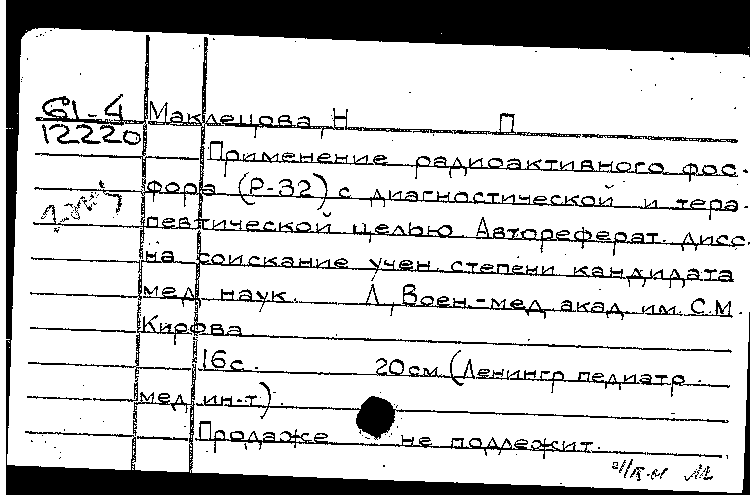 61-4 Маклецова, Н П
12220
Применение радиоактивного фос-
фора (Р-32) с диагностической и тера-
певтической целью Автореферат дисс.
на соискание учен. степени кандидата
мед. наук. Л, Воен.-мед акад. им. С.М.
Кирова
16с. 20см (Ленингр педиатр.
мед ин-т).
Продаже не подлежит.